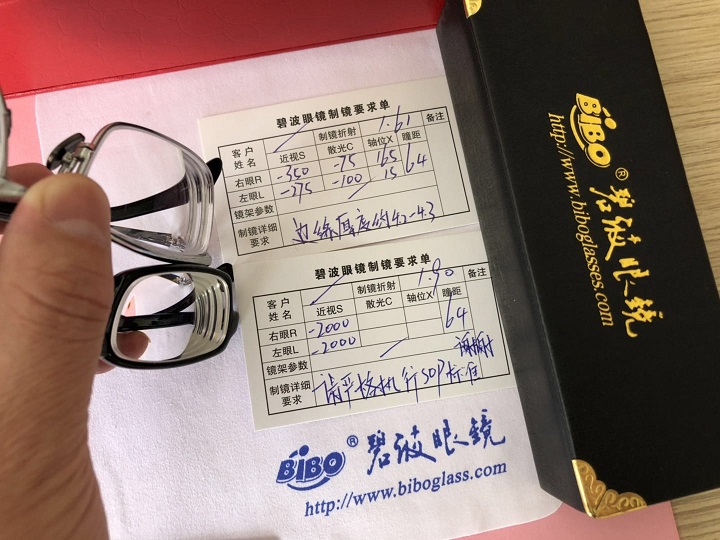 碧波眼镜制镜要求单
客户姓名 制镜折射 1.61 备注
近视S 散光C 轴位X 瞳距
右眼R -350 -75 165 64
左眼L -275 -100 15
镜架参数
制镜详细要求 边缘厚度约4.2-4.3
碧波眼镜制镜要求单
客户姓名 制镜折射 1.90 备注
近视S 散光C 轴位X 瞳距
右眼R -2000 64
左眼L -2000
镜架参数
制镜详细要求 请严格执行SOP标准 谢谢
BiBO® 碧波眼镜
http://www.biboglass.com
BiBO® 碧波眼镜
http://www.biboglasses.com